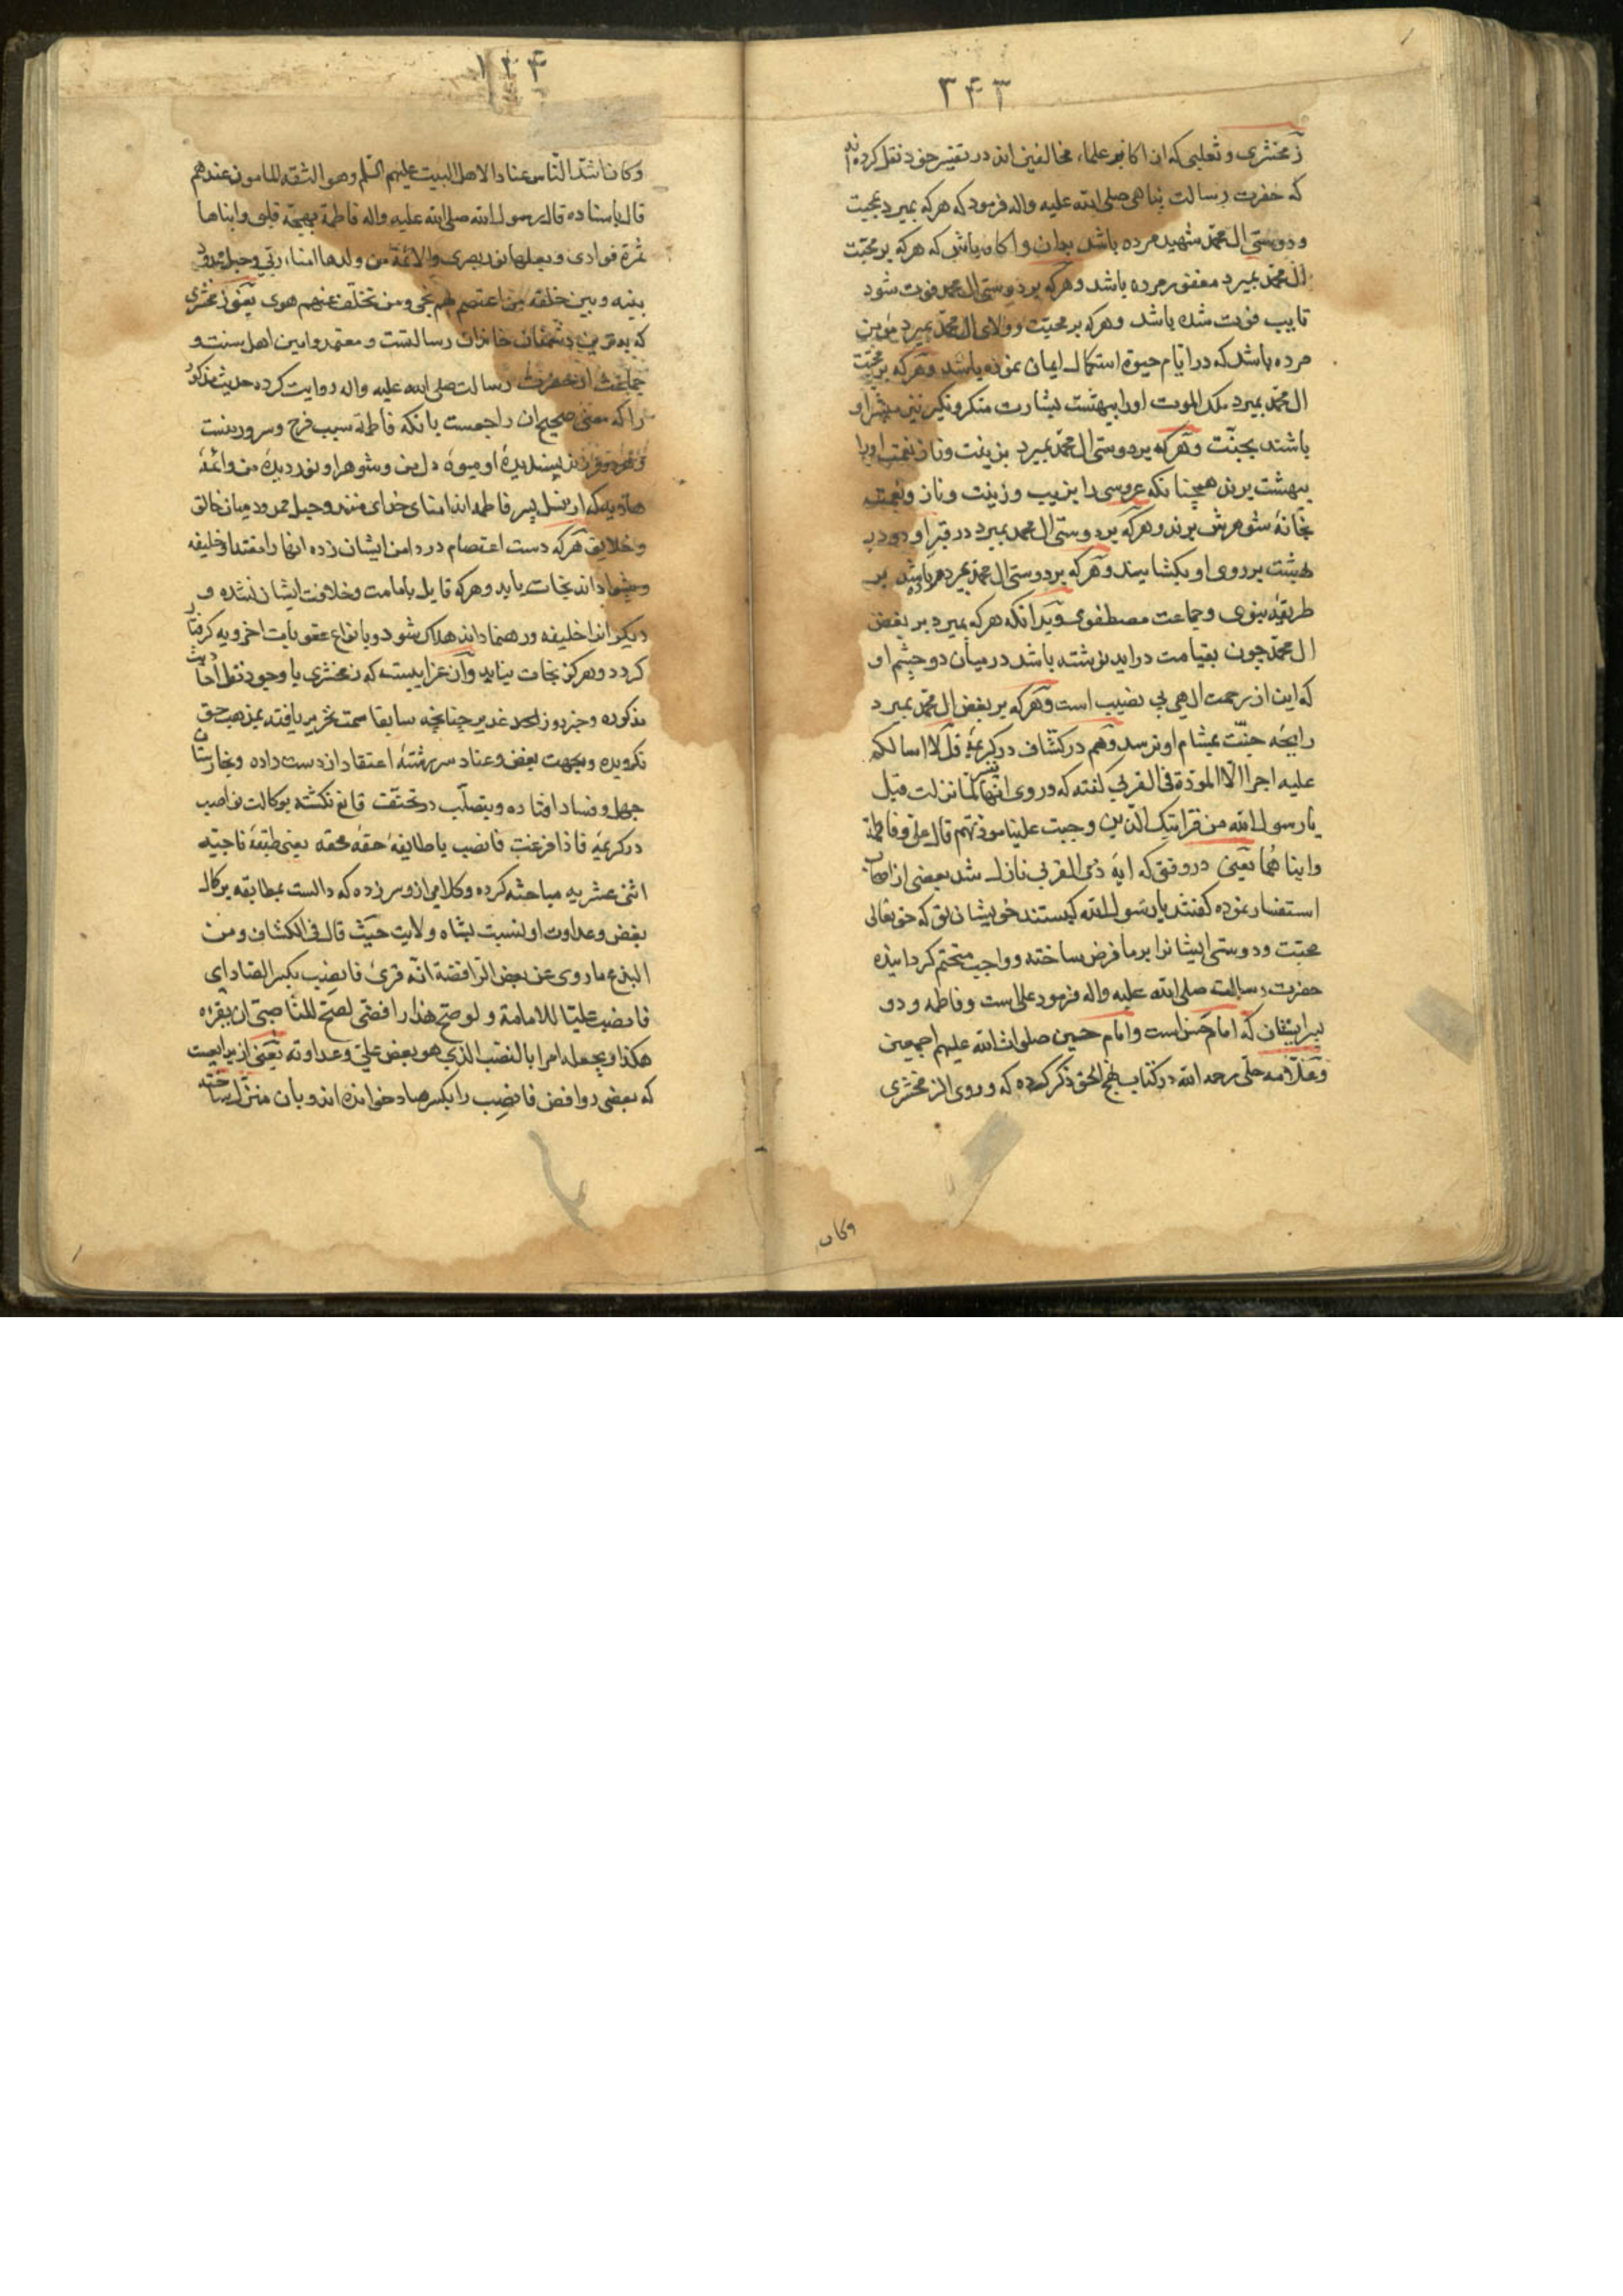 ۲۴۳
زمخشری و ثعلبی که از اکابر علماء مخالفین اند در تفسیر خود نقل کرده اند
که حضرت رسالت پناهی صلی الله علیه واله فرمود که هرکه بمیرد بمحبت
و دوستی ال محمد شهید مرده باشد بدان و اکاه باش که هرکه بر محبت
ال محمد بمیرد مغفور مرده باشد و هرکه بر دوستی ال محمد فوت شود
تایب فوت شده باشد و هرکه بر محبت و ولای ال محمد بمیرد مؤمن
مرده باشد که در ایام حیوة استکمال ایمان نموده باشد و هرکه بر محبت
ال محمد بمیرد ملک الموت اورا ببهشت بشارت منکر و نکیر نیز مبشر او
باشند بجنت و هرکه بر دوستی ال محمد بمیرد بزینت و ناز و نعمت اورا
ببهشت برند همچنانکه عروسی را بزیب و زینت و ناز و نعمت
بخانهٔ شوهرش برند و هرکه بر دوستی ال محمد بمیرد در قبر او دو در
بهشت بر روی او بکشایند و هرکه بر دوستی ال محمد بمیرد مرده باشد بر
طریقهٔ نبوی و جماعت مصطفوی و بدانکه هرکه بمیرد بر بغض
ال محمد چون بقیامت دراید نوشته باشد در میان دو چشم او
که این از رحمت الهی بی نصیب است و هرکه بر بغض ال محمد بمیرد
رایحه جنت بمشام او نرسد و هم در کشاف در تفسیر کریمهٔ قل لا اسالکم
علیه اجرا الا المودة فی القربی کفته که و روی انها لما نزلت قیل
یا رسول الله من قرابتک الذین وجبت علینا مودتهم قال علی و فاطمة
و ابناهما یعنی در وقتی که ایهٔ ذی القربی نازل شد بعضی از اصحاب
استفسار نموده کفتند یا رسول الله کیستند خویشان تو که حق تعالی
محبت و دوستی ایشانرا بر ما فرض ساخته و واجب متحتم کردانیده
حضرت رسالت صلی الله علیه واله فرمود علی است و فاطمه و دو
پسر ایشان که امام حسن است و امام حسین صلوات الله علیهم اجمعین
و علامه حلی رحمه الله در کتاب نهج الحق ذکر کرده که و روی الزمخشری
وکان
۲۴۴
وکان اشد الناس عنادا لاهل البیت علیهم السلم وهو الثقة المامون عندهم
قال باسناده قال رسول الله صلی الله علیه واله فاطمة بهجة قلبی وابناها
ثمرة فوادی وبعلها نور بصری والائمة من ولدها امناء ربی وحبل ممدود
بینه وبین خلقه من اعتصم بهم نجی ومن تخلف عنهم هوی یعنی زمخشری
که بدترین دشمنان خاندان رسالتست و معتمد و امین اهل سنت و
جماعت از حضرت رسالت صلی الله علیه واله روایت کرده حدیث مذکور
را که معنی صحیح ان راجعست بانکه فاطمه سبب فرح و سرور منست
و فرزند پسندیدهٔ او میوهٔ دل من و شوهر او نور دیدهٔ من و ائمهٔ
هادیه که از نسل پسر فاطمه اند امنای خدای منند و حبل ممدود میان خالق
و خلایق هرکه دست اعتصام در دامن ایشان زده انها را مقتدا و خلیفه
و پیشوا داند نجات یابد و هرکه قایل بامامت و خلافت ایشان نشده و
دیکر انرا خلیفه و رهنما داند هلاک شود و بانواع عقوبات اخرویه کرفتار
کردد و هرکز نجات نیابد و آن غرایبست که زمخشری با وجود نقل احادیث
مذکوره و خبر روز غدیر چنانچه سابقا سمت تحریر یافته بمذهب حق
نکرویده و بجهت بغض و عناد سررشتهٔ اعتقاد از دست داده و بخارستان
جهل و فساد افتاده و بتصلب در تحنف قانع نکشته بوکالت نواصب
در کریمهٔ فاذا فرغت فانصب با طایفهٔ حقهٔ محقه یعنی طبقهٔ ناجیه
اثنی عشریه مباحثه کرده و کلامی از او سر زده که دالست بمطابقه بر کمال
بغض و عداوت او نسبت بشاه ولایت حیث قال فی الکشاف ومن
البدع ما روی عن بعض الرافضة انه قرئ فانصب بکسر الصاد ای
فانصب علیا للامامة ولو صح هذا لرافضی لصح للناصبی ان یقرء
هکذا ویجعله امرا بالنصب الذی هو بغض علی وعداوته یعنی از بدایعست
که بعضی روافض فانصب را بکسر صاد خوانده اند و بان متنزل ساخته